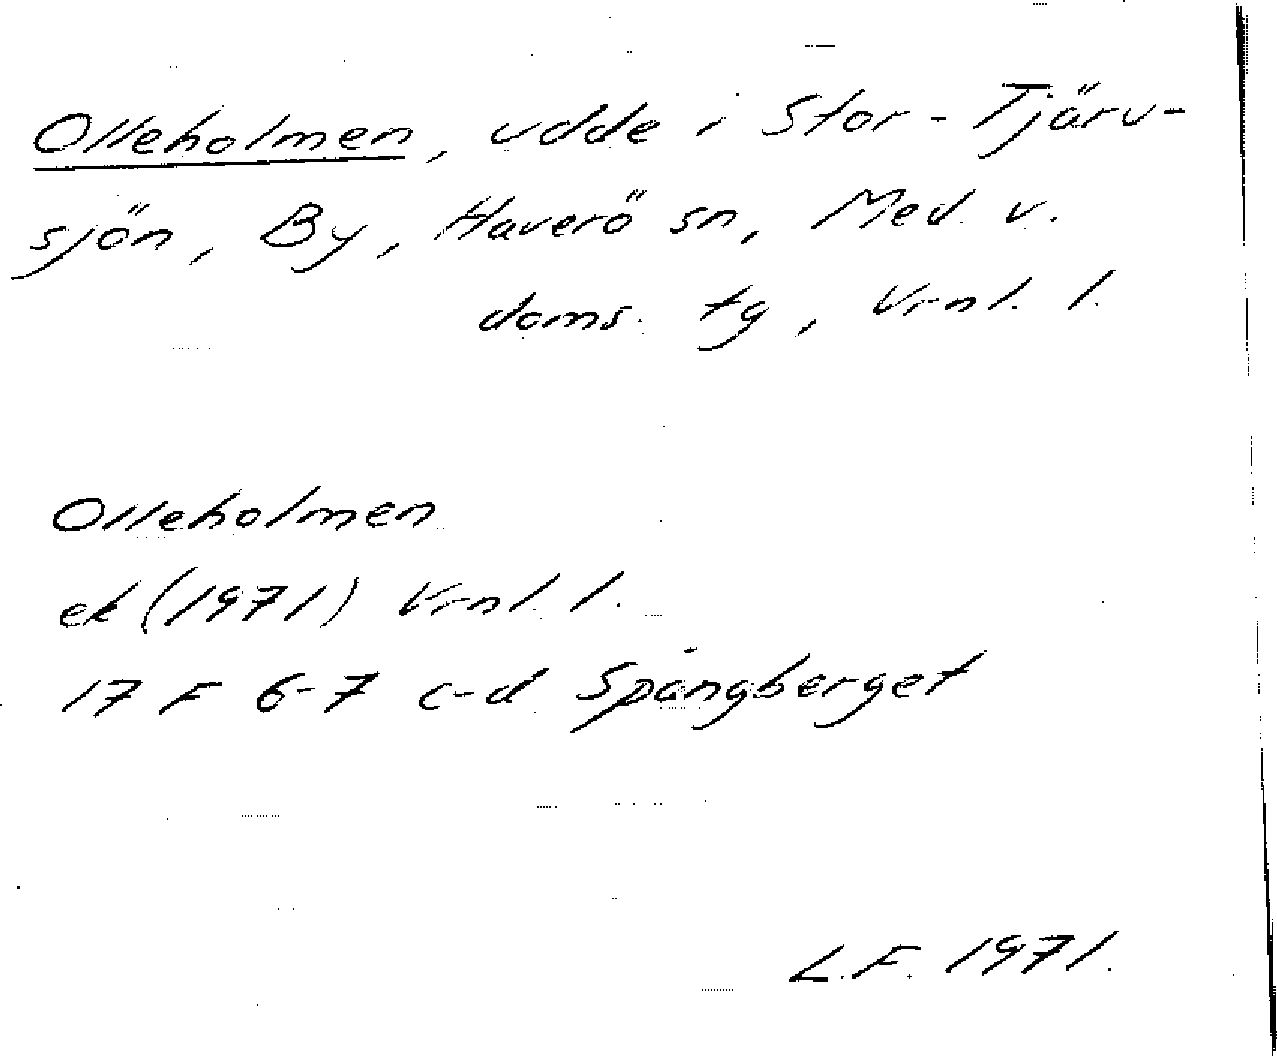 Olleholmen, udde i Stor-Tjärv-
sjön, By, Haverö sn, Med. v.
doms. tg, Vrnl. l.
Olleholmen
ek (1971) Vrnl. l.
17 F 6-7 c-d Spångberget
L.F. 1971.